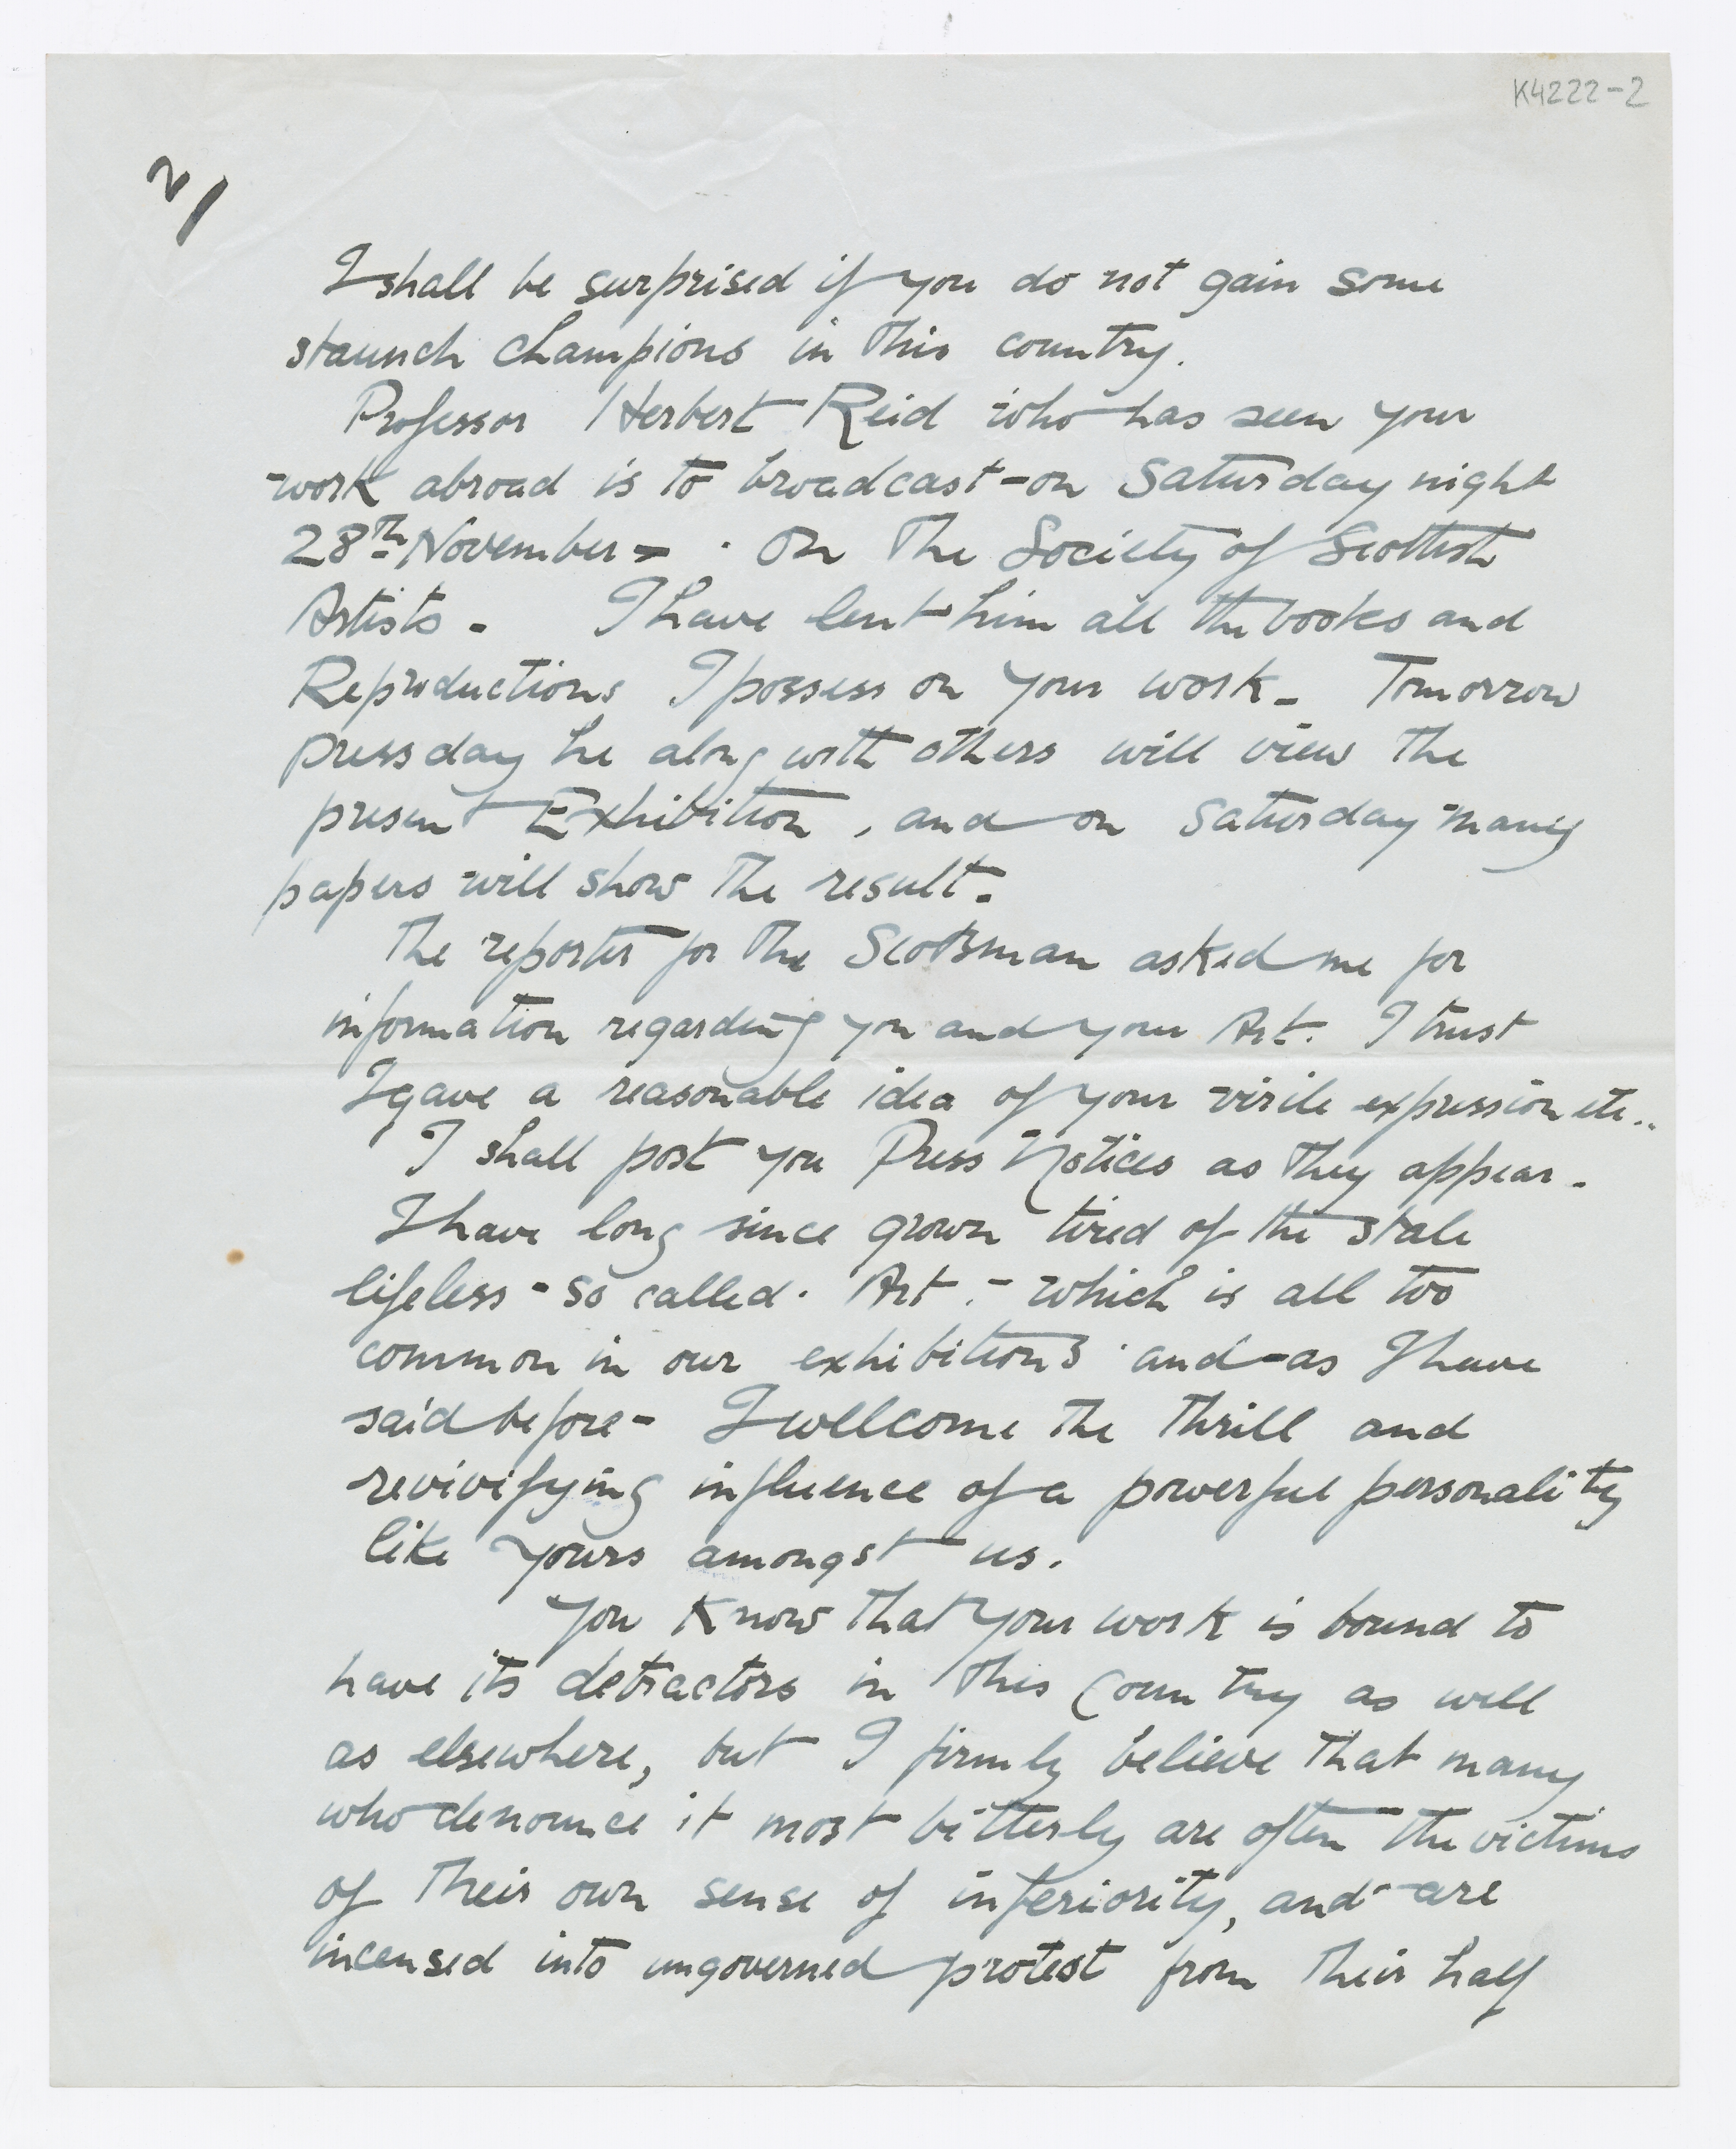 K4222-2
2/
I shall be surprised if you do not gain some
staunch champions in this country.
Professor Herbert Reid who has seen your
work abroad is to broadcast - on Saturday night
28th November - . On The Society of Scottish
Artists - I have lent him all the books and
Reproductions I possess on your work - Tomorrow
press day he along with others will view the
present Exhibition, and on Saturday many
papers will show the result.
The reporter for The Scotsman asked me for
information regarding you and your Art. I trust
I gave a reasonable idea of your virile expression etc..
I shall post you Press Notices as they appear -
I have long since grown tired of the stale
lifeless - so called. Art. - which is all too
common in our exhibitions and - as I have
said before - I wellcome the thrill and
revivifying influence of a powerful personality
like yours amongst us.
You know that your work is bound to
have its detractors in this Country as well
as elsewhere, but I firmly believe that many
who denounce it most bitterly are often the victims
of their own sense of inferiority, and are
incensed into ungoverned protest from their half